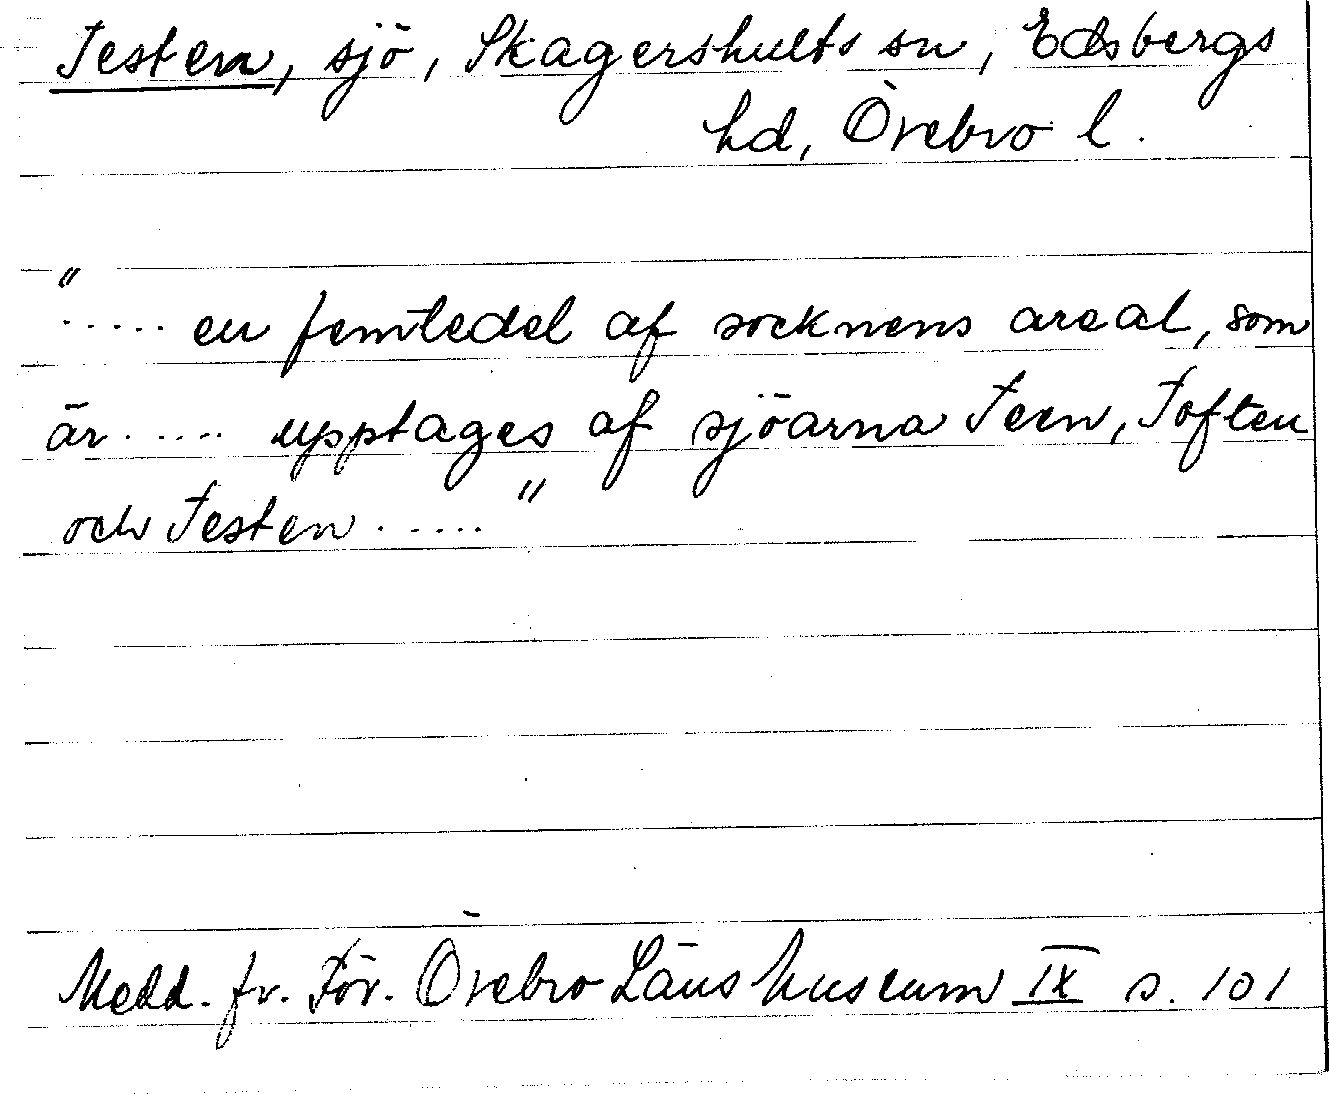 Testen, sjö, Skagershults sn, Edsbergs
hd, Örebro l.
"..... en femtedel af socknens areal, som
är ..... upptages af sjöarna Teen, Toften
och Testen ....."
Medd. fr. För. Örebro Läns Museum IX s. 101